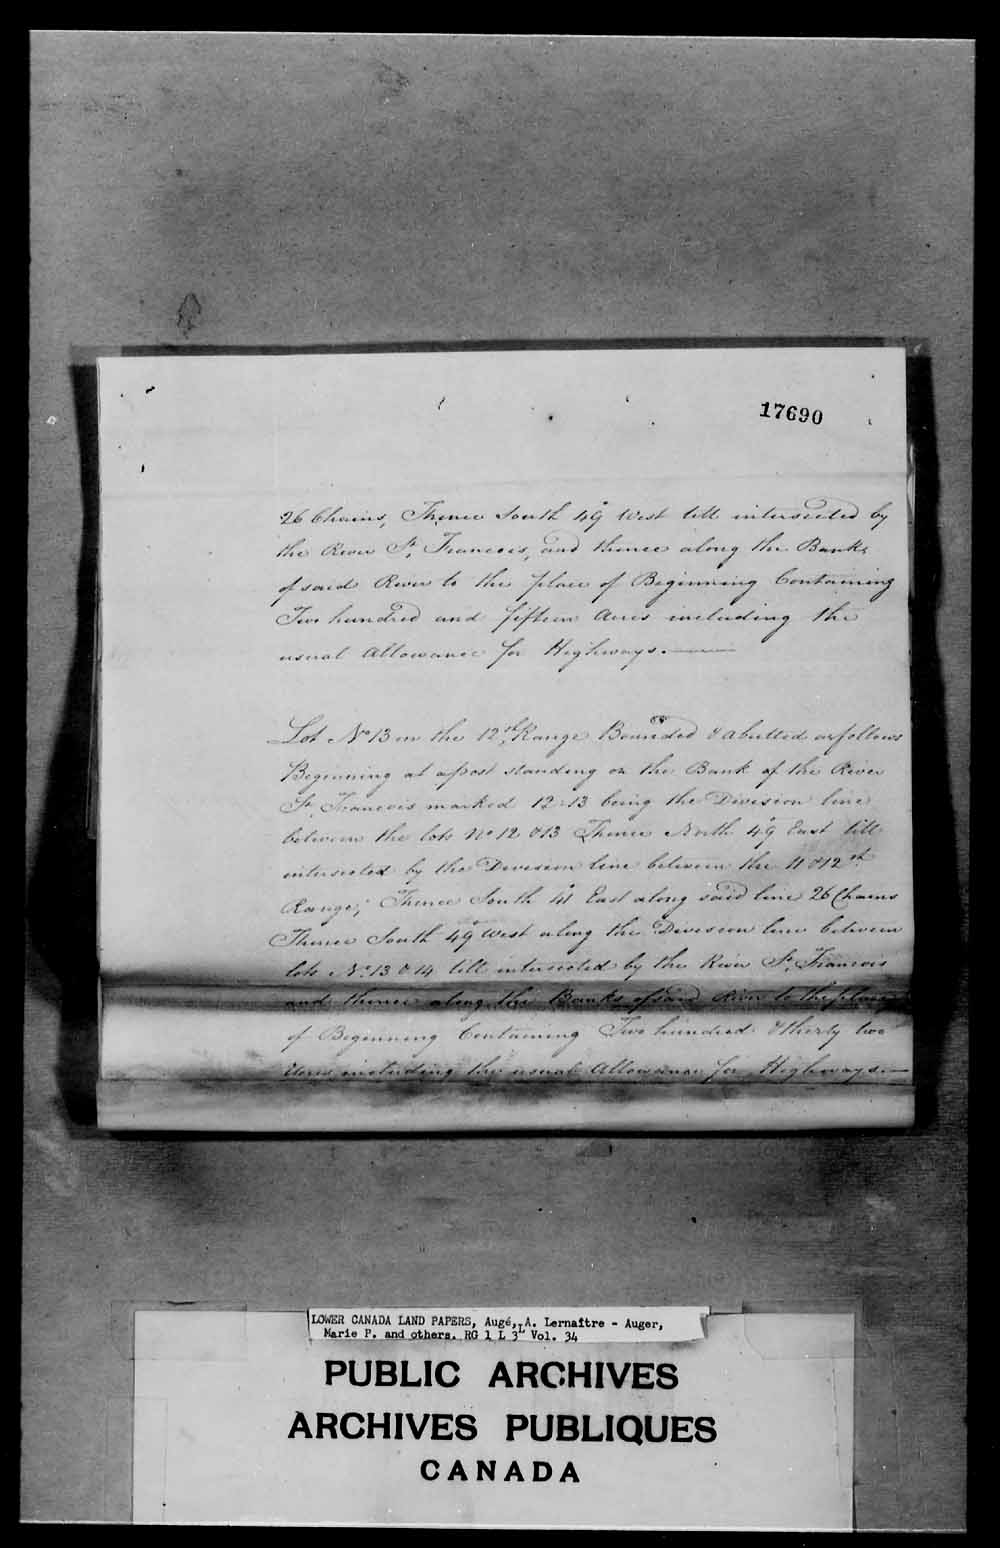 17690
26 Chains, Thence South 49° West till intersected by
the River St. Francois, and thence along the Banks
of said River to the place of Beginning Containing
Two hundred and fifteen Acres including the
usual Allowance for Highways.———
Lot No 13 in the 12th Range Bounded & abutted as follows
Beginning at a post standing on the Bank of the River
St. Francois marked 12.13 being the Division line
between the lots No 12 & 13 Thence North 49° East till
intersected by the Division line between the 11 & 12th
Range; Thence South 41° East along said line 26 Chains
Thence South 49° West along the Division line between
lots No. 13 & 14 till intersected by the River St. Francois
and thence along the Banks of said River to the place
of Beginning Containing Two hundred & therty two
Acres including the usual Allowance for Highways.—
LOWER CANADA LAND PAPERS, Augé, A. Lernaître - Auger,
Marie P. and others. RG 1 L 3L Vol. 34
PUBLIC ARCHIVES
ARCHIVES PUBLIQUES
CANADA